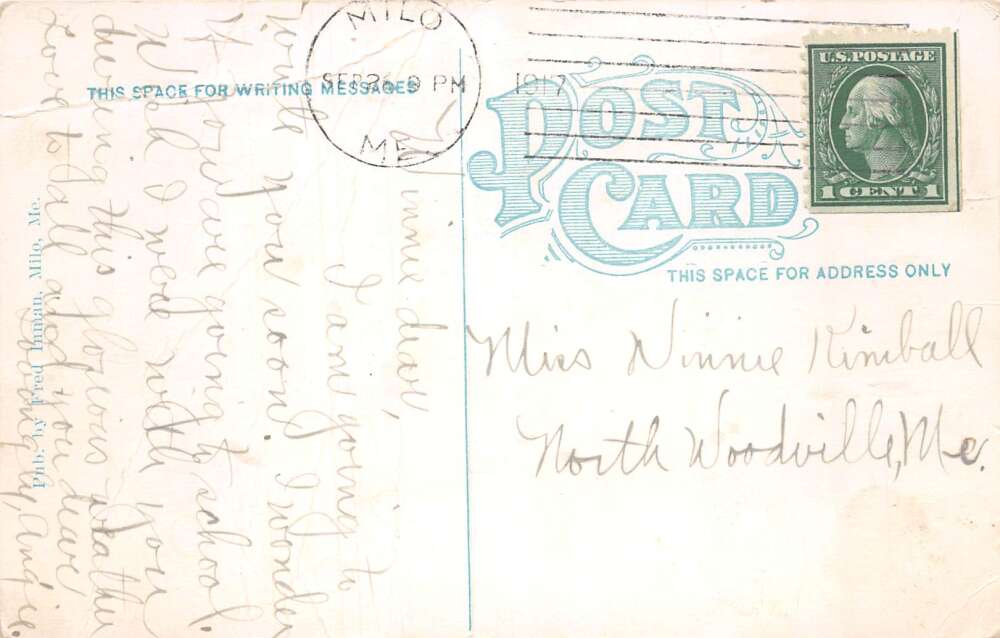 MILO
SEP 26 9 PM
1917
ME.
THIS SPACE FOR WRITING MESSAGES
POST CARD
THIS SPACE FOR ADDRESS ONLY
U.S. POSTAGE
1 CENT 1
Miss Ninnie Kimball
North Woodville, Me.
Ninnie dear,
I am going to
write you soon. I wonder
if you are going to school.
Wish I were with you
during this glorious weather
Love to all and you dear
Lovingly, Angie.
Pub. by Fred Inman, Milo, Me.